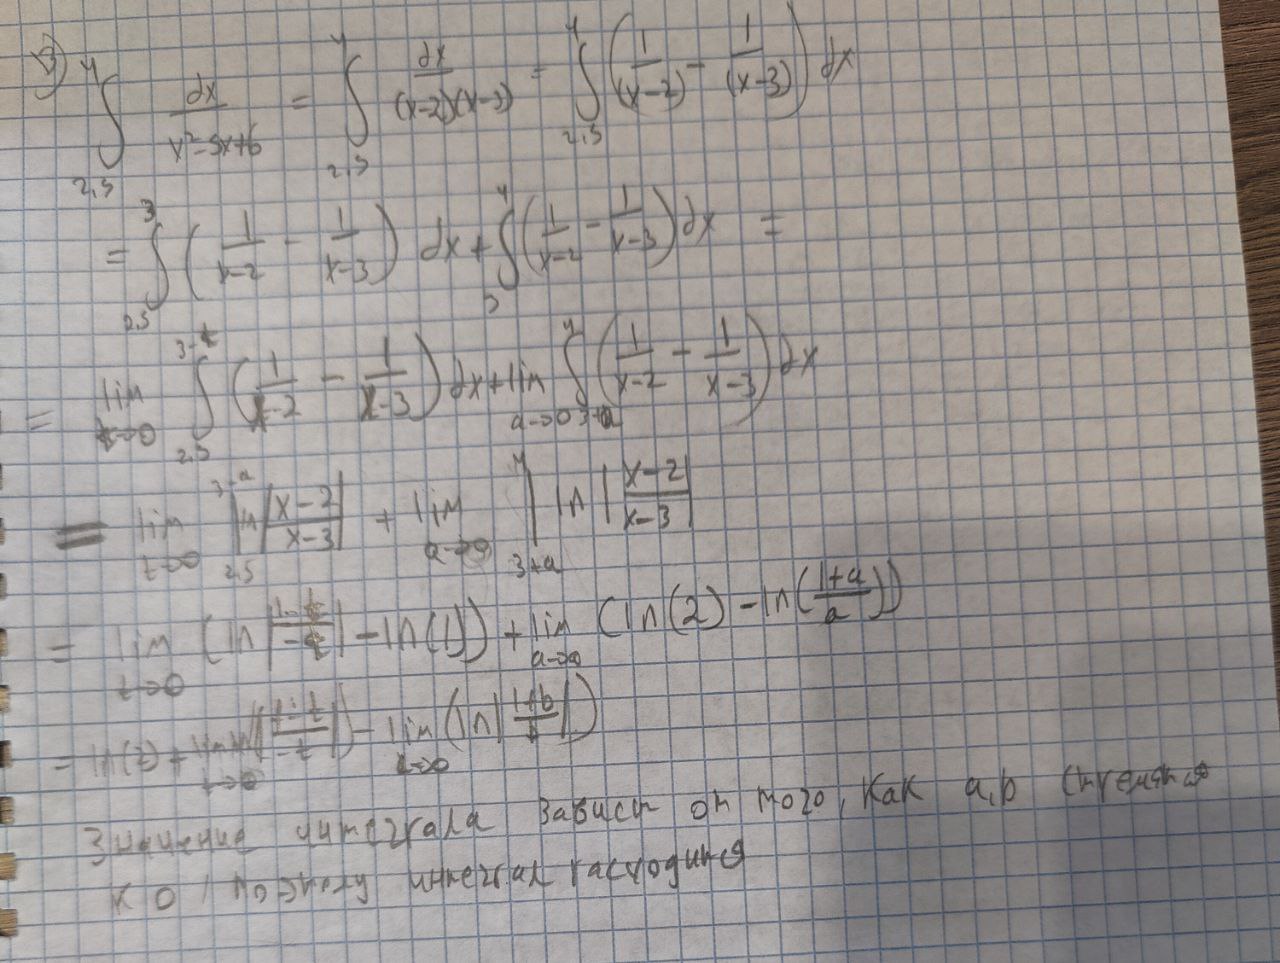 3) ∫_{2,5}^{4} dx/(x²-5x+6) = ∫_{2,5}^{4} dx/((x-2)(x-3)) = ∫_{2,5}^{4} (1/(x-2) - 1/(x-3)) dx
= ∫_{2,5}^{3} (1/(x-2) - 1/(x-3)) dx + ∫_{3}^{4} (1/(x-2) - 1/(x-3)) dx =
= lim_{t→0} ∫_{2,5}^{3-t} (1/(x-2) - 1/(x-3)) dx + lim_{a→0} ∫_{3+a}^{4} (1/(x-2) - 1/(x-3)) dx
= lim_{t→0} |_{2,5}^{3-a} ln|(x-2)/(x-3)| + lim_{a→0} |_{3+a}^{4} ln|(x-2)/(x-3)|
= lim_{t→0} (ln|(1-t)/(-t)| - ln(1)) + lim_{a→0} (ln(2) - ln((1+a)/a))
= ln(2) + lim_{t→0} ln(|(1-t)/(-t)|) - lim (ln|(1+b)/b|)
Значение интеграла зависит от того, как a,b стремятся
к 0, поэтому интеграл расходится